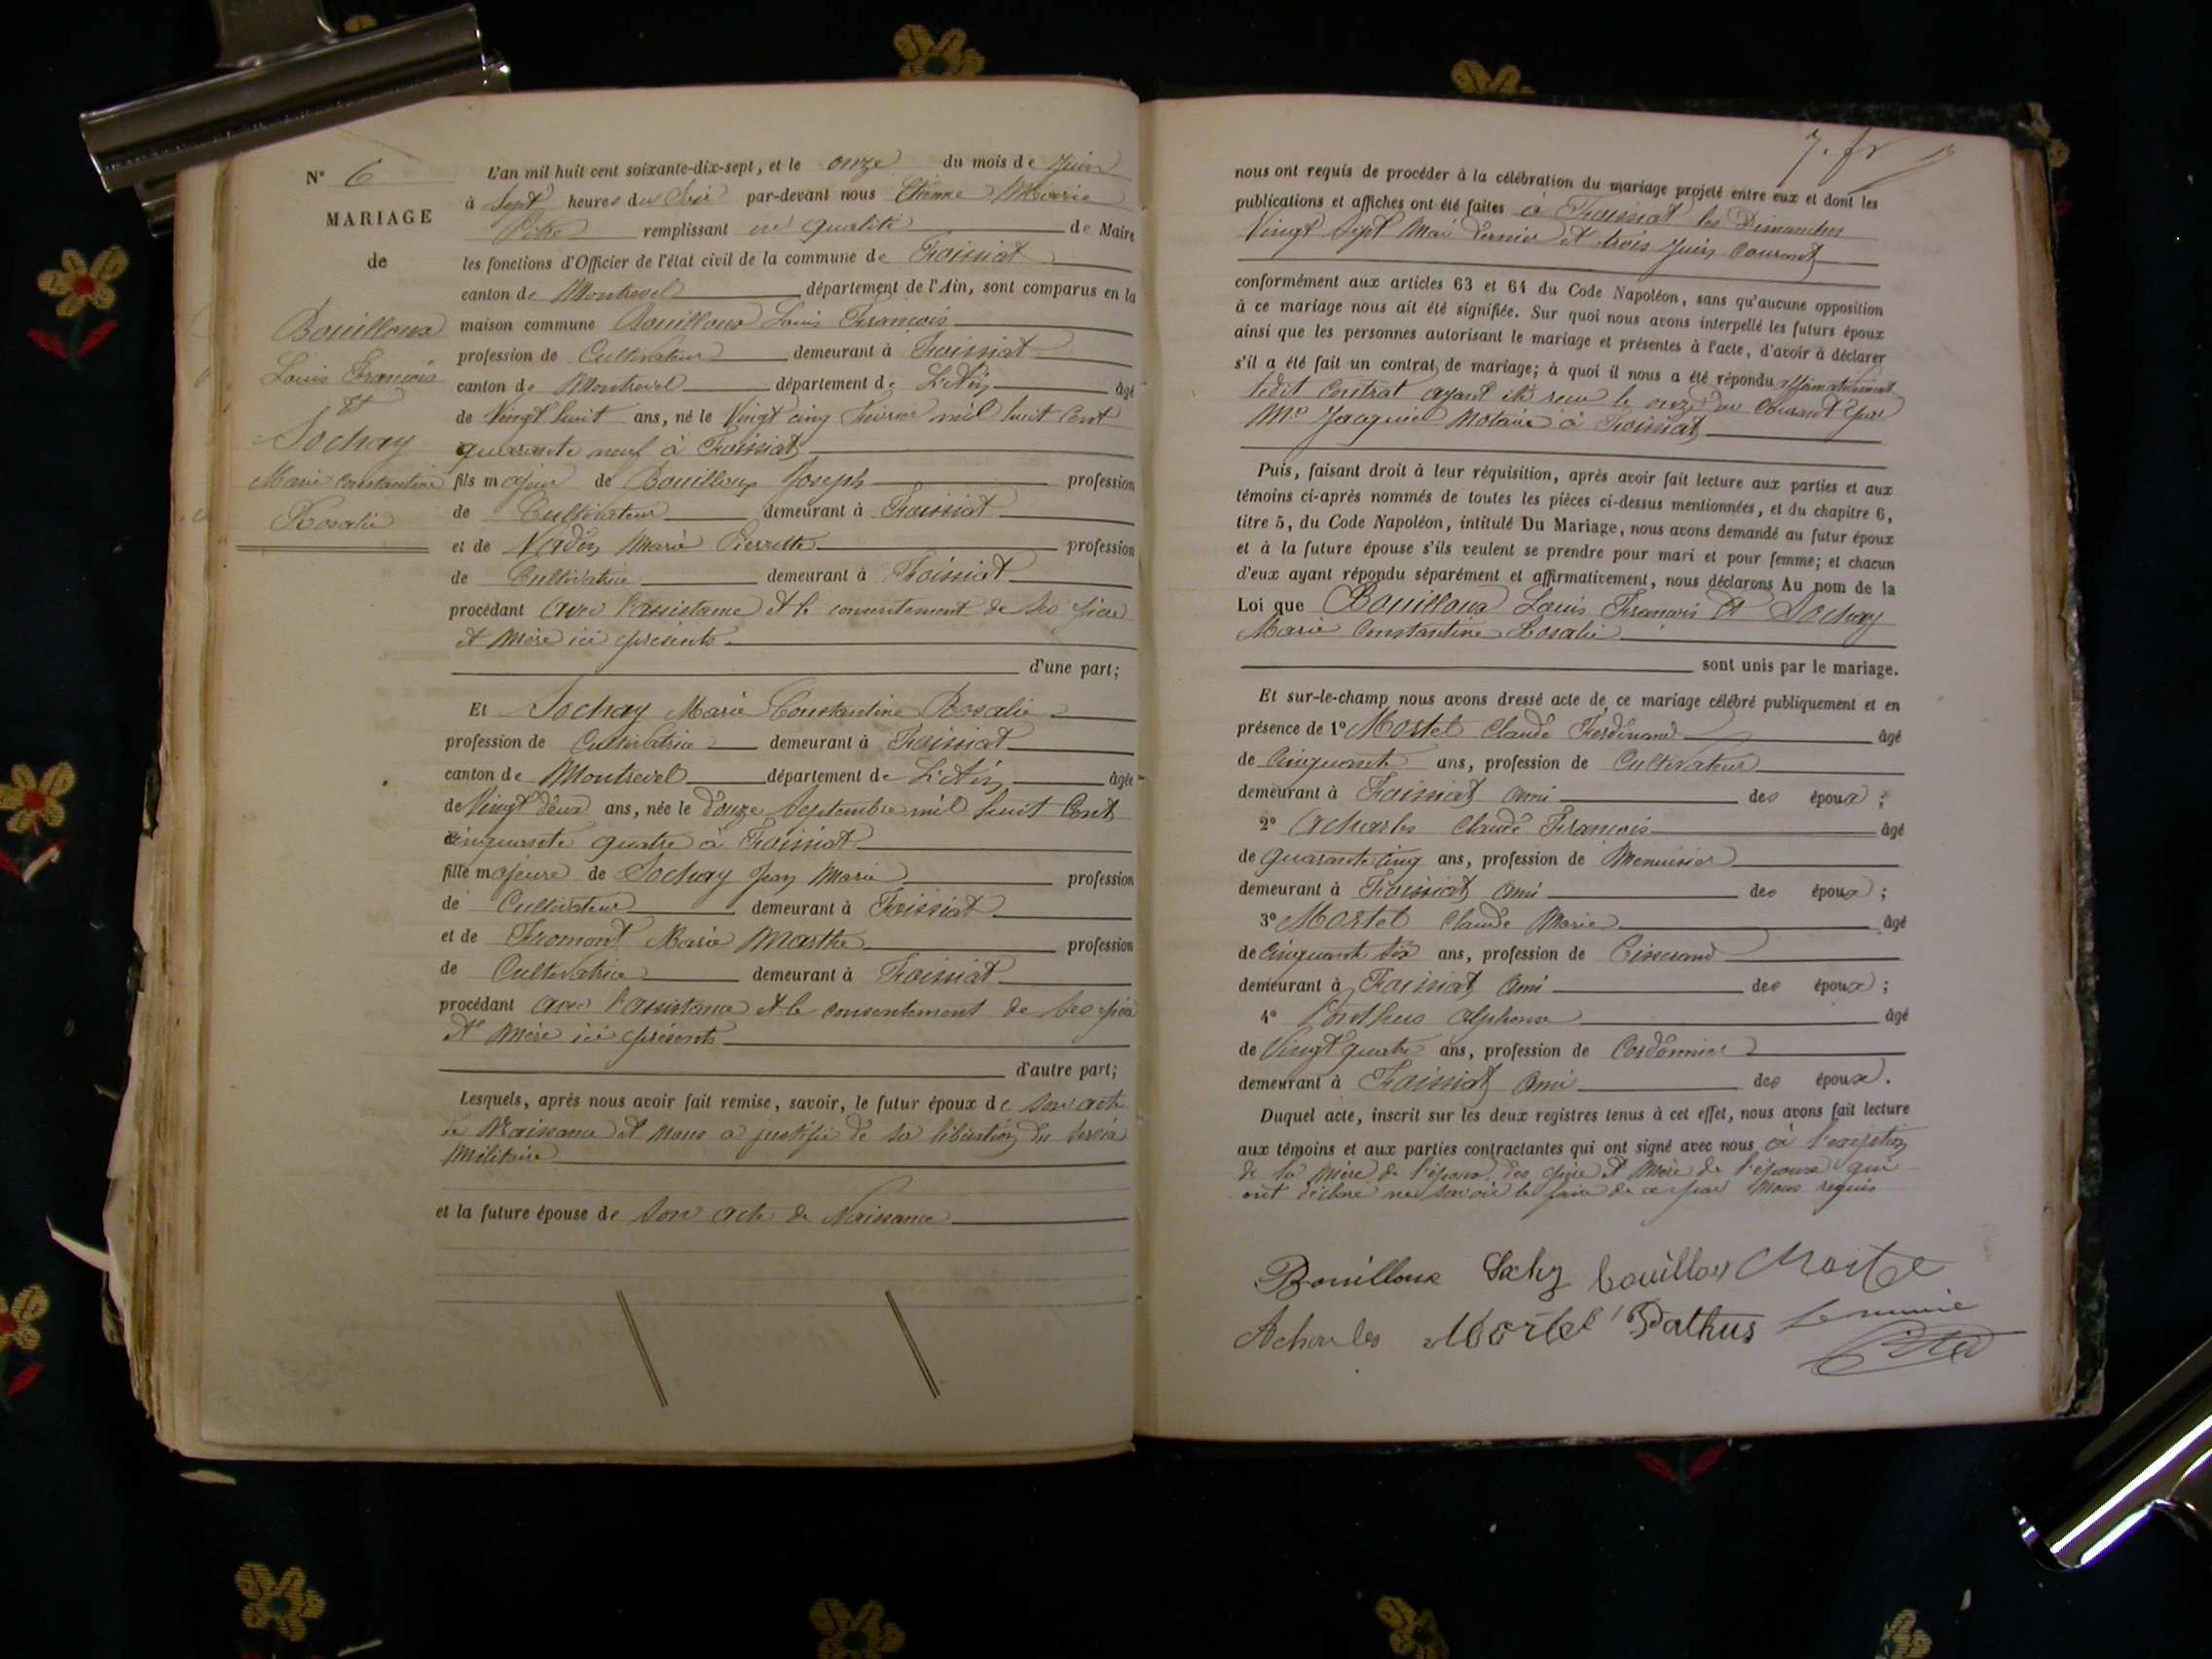 N° 6
MARIAGE
de
Bouilloux
Louis François
et
Sochay
Marie Constantine
Rosalie
L'an mil huit cent soixante-dix-sept, et le onze du mois de Juin
à Sept heures du Soir par-devant nous Etienne Marie
remplissant en qualité de Maire
les fonctions d'Officier de l'état civil de la commune de Foissiat
canton de Montrevel département de l'Ain, sont comparus en la
maison commune Bouilloux Louis François
profession de Cultivateur demeurant à Foissiat
canton de Montrevel département de L'Ain âgé
de Vingt huit ans, né le Vingt cinq mil huit Cent
quarante neuf à Foissiat
fils majeur de Bouilloux Joseph profession
de Cultivateur demeurant à Foissiat
et de Verdin Marie Pierrette profession
de Cultivatrice demeurant à Foissiat
procédant avec l'assistance et le consentement de ses père
et mère ici présents
d'une part;
Et Sochay Marie Constantine Rosalie
profession de Cultivatrice demeurant à Foissiat
canton de Montrevel département de L'Ain âgée
de Vingt deux ans, née le douze Septembre mil huit Cent
cinquante quatre à Foissiat
fille majeure de Sochay Jean Marie profession
de Cultivateur demeurant à Foissiat
et de Fromont Marie Marthe profession
de Cultivatrice demeurant à Foissiat
procédant avec l'assistance et le consentement de ses père
et mère ici présents
d'autre part;
Lesquels, après nous avoir fait remise, savoir, le futur époux de son acte
de Naissance et nous a justifié de sa libération du service
Militaire
et la future épouse de son acte de Naissance
nous ont requis de procéder à la célébration du mariage projeté entre eux et dont les
publications et affiches ont été faites à Foissiat les Dimanches
Vingt Sept Mai dernier et trois Juin Courant
conformément aux articles 63 et 64 du Code Napoléon, sans qu'aucune opposition
à ce mariage nous ait été signifiée. Sur quoi nous avons interpellé les futurs époux
ainsi que les personnes autorisant le mariage et présentes à l'acte, d'avoir à déclarer
s'il a été fait un contrat de mariage; à quoi il nous a été répondu affirmativement
ledit Contrat ayant été reçu le onze du Courant par
Me Jacquier Notaire à Foissiat
Puis, faisant droit à leur réquisition, après avoir fait lecture aux parties et aux
témoins ci-après nommés de toutes les pièces ci-dessus mentionnées, et du chapitre 6,
titre 5, du Code Napoléon, intitulé Du Mariage, nous avons demandé au futur époux
et à la future épouse s'ils veulent se prendre pour mari et pour femme; et chacun
d'eux ayant répondu séparément et affirmativement, nous déclarons Au nom de la
Loi que Bouilloux Louis François et Sochay
Marie Constantine Rosalie
sont unis par le mariage.
Et sur-le-champ nous avons dressé acte de ce mariage célébré publiquement et en
présence de 1° Mortel Claude Ferdinand âgé
de Cinquante ans, profession de Cultivateur
demeurant à Foissiat ami des époux ;
2° Acharles Claude François âgé
de quarante cinq ans, profession de Menuisier
demeurant à Foissiat ami des époux ;
3° Mortel Claude Marie âgé
de Cinquante Six ans, profession de Tisserand
demeurant à Foissiat ami des époux ;
4° Alphonse âgé
de Vingt quatre ans, profession de Cordonnier
demeurant à Foissiat ami des époux.
Duquel acte, inscrit sur les deux registres tenus à cet effet, nous avons fait lecture
aux témoins et aux parties contractantes qui ont signé avec nous à l'exception
de la Mère de l'époux, des père et Mère de l'épouse qui
ont déclaré ne savoir le faire de ce par Nous requis
Bouilloux Sochy bouilloux Mortel
Acharles Mortel Pothus Le maire